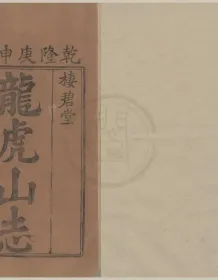 乾隆庚申
棲碧堂
龍虎山志